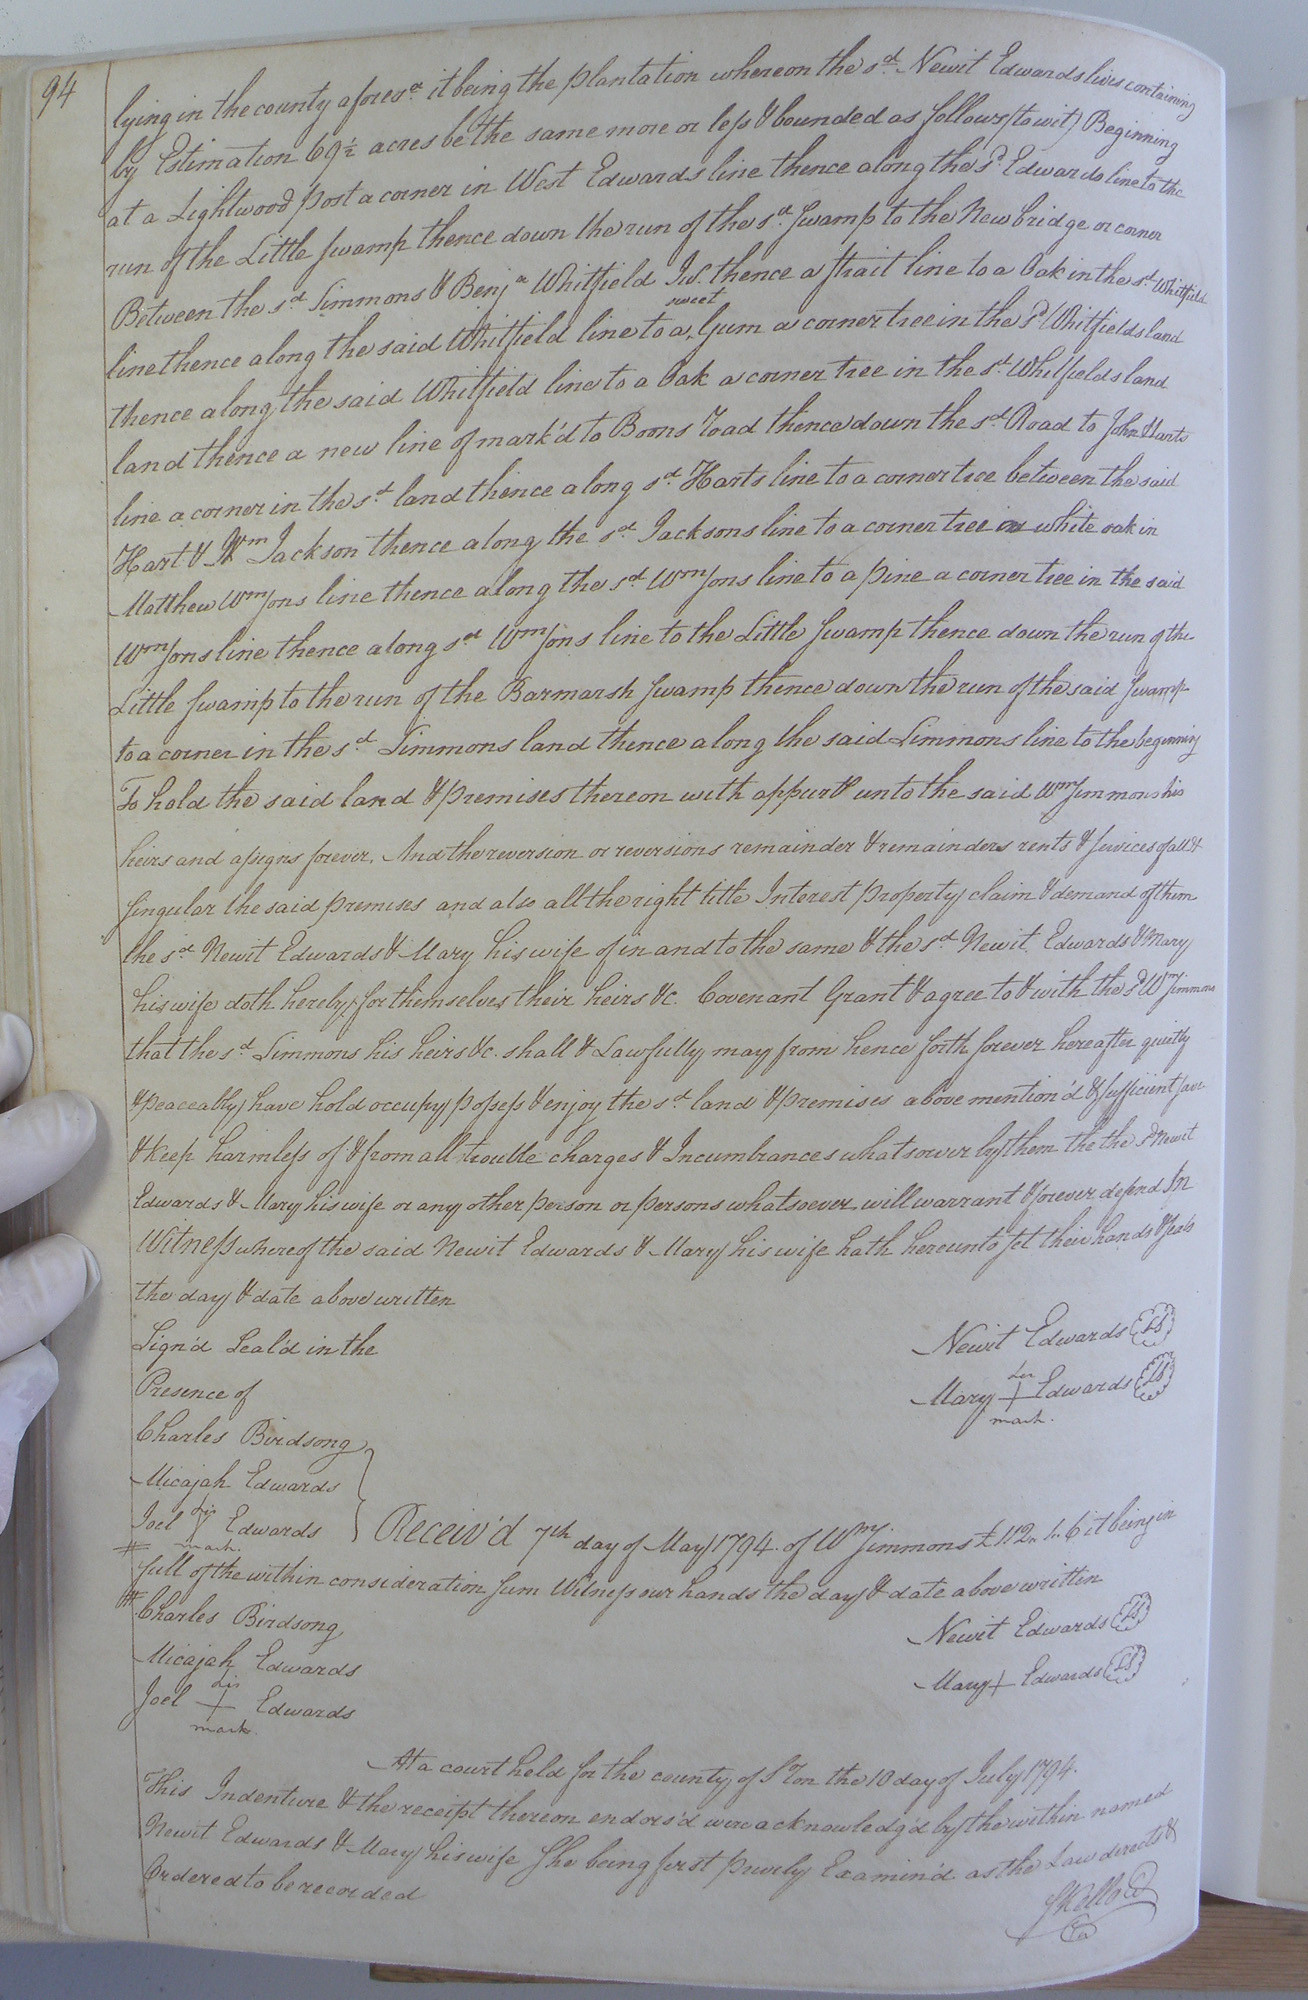 94
lying in the county afores.d it being the plantation whereon the s.d Newit Edwards lives containing
by Estimation 69½ acres be the same more or less & bounded as follows (to wit) Beginning
at a Lightwood post a corner in West Edwards line thence along the s.d Edwards line to the
run of the Little Swamp thence down the run of the s.d Swamp to the New bridge or corner
Between the s.d Simmons & Benj.a Whitfield thence a strait line to a Oak in the s.d Whitfield
line thence along the said Whitfield line to a sweet Gum a corner tree in the s.d Whitfields land
thence along the said Whitfield line to a Oak a corner tree in the s.d Whitfields land
land thence a new line of mark'd to Boons road thence down the s.d Road to John Harts
line a corner in the s.d land thence along s.d Harts line to a corner tree between the said
Hart & W.m Jackson thence along the s.d Jacksons line to a corner tree white oak in
Matthew Wmsons line thence along the s.d Wmsons line to a pine a corner tree in the said
Wmsons line thence along s.d Wmsons line to the Little Swamp thence down the run of the
Little Swamp to the run of the Barmarsh Swamp thence down the run of the said Swamp
to a corner in the s.d Simmons land thence along the said Simmons line to the beginning
To hold the said land & premises thereon with appur& unto the said Wm Simmons his
heirs and assigns forever. And the reversion or reversions remainder & remainders rents & services of all &
singular the said premises and also all the right title Interest property claim & demand of them
the s.d Newit Edwards & Mary his wife of in and to the same & the s.d Newit Edwards & Mary
his wife doth hereby for themselves their heirs &c. Covenant Grant & agree to & with the s.d Wm Simmons
that the s.d Simmons his heirs &c. shall & Lawfully may from hence forth forever hereafter quietly
& peaceably have hold occupy possess & enjoy the s.d land & premises above mention'd & sufficient save
& keep harmless of & from all trouble charges & Incumbrances whatsoever by them the the s.d Newit
Edwards & Mary his wife or any other person or persons whatsoever will warrant & forever defend In
Witness whereof the said Newit Edwards & Mary his wife hath hereunto set their hands & seals
the day & date above written
Sign'd Seal'd in the
Newit Edwards LS
Presence of
her
Mary + Edwards LS
mark.
Charles Birdsong
Micajah Edwards
his
Joel Edwards
mark.
Receiv'd 7th day of May 1794. of Wm Simmons £112 6 it being in
full of the within consideration sum Witness our hands the day & date above written
Charles Birdsong
Newit Edwards LS
Micajah Edwards
Mary + Edwards LS
his
Joel + Edwards
mark.
At a court held for the county of S'Ton the 10 day of July 1794.
This Indenture & the receipt thereon endors'd were acknowledg'd by the within named
Newit Edwards & Mary his wife She being first privily Examin'd as the Law directs &
Ordered to be recorded